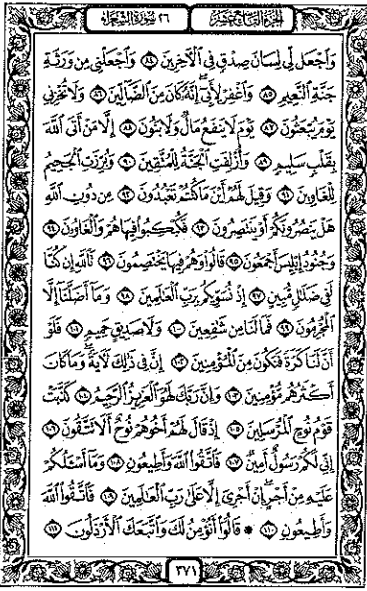 الجزء التاسع عشر
٢٦ سورة الشعراء
وَٱجۡعَل لِّي لِسَانَ صِدۡقٖ فِي ٱلۡأٓخِرِينَ ٨٤ وَٱجۡعَلۡنِي مِن وَرَثَةِ
جَنَّةِ ٱلنَّعِيمِ ٨٥ وَٱغۡفِرۡ لِأَبِيٓ إِنَّهُۥ كَانَ مِنَ ٱلضَّآلِّينَ ٨٦ وَلَا تُخۡزِنِي
يَوۡمَ يُبۡعَثُونَ ٨٧ يَوۡمَ لَا يَنفَعُ مَالٞ وَلَا بَنُونَ ٨٨ إِلَّا مَنۡ أَتَى ٱللَّهَ
بِقَلۡبٖ سَلِيمٖ ٨٩ وَأُزۡلِفَتِ ٱلۡجَنَّةُ لِلۡمُتَّقِينَ ٩٠ وَبُرِّزَتِ ٱلۡجَحِيمُ
لِلۡغَاوِينَ ٩١ وَقِيلَ لَهُمۡ أَيۡنَ مَا كُنتُمۡ تَعۡبُدُونَ ٩٢ مِن دُونِ ٱللَّهِ
هَلۡ يَنصُرُونَكُمۡ أَوۡ يَنتَصِرُونَ ٩٣ فَكُبۡكِبُواْ فِيهَا هُمۡ وَٱلۡغَاوُۥنَ ٩٤
وَجُنُودُ إِبۡلِيسَ أَجۡمَعُونَ ٩٥ قَالُواْ وَهُمۡ فِيهَا يَخۡتَصِمُونَ ٩٦ تَٱللَّهِ إِن كُنَّا
لَفِي ضَلَٰلٖ مُّبِينٍ ٩٧ إِذۡ نُسَوِّيكُم بِرَبِّ ٱلۡعَٰلَمِينَ ٩٨ وَمَآ أَضَلَّنَآ إِلَّا
ٱلۡمُجۡرِمُونَ ٩٩ فَمَا لَنَا مِن شَٰفِعِينَ ١٠٠ وَلَا صَدِيقٍ حَمِيمٖ ١٠١ فَلَوۡ
أَنَّ لَنَا كَرَّةٗ فَنَكُونَ مِنَ ٱلۡمُؤۡمِنِينَ ١٠٢ إِنَّ فِي ذَٰلِكَ لَأٓيَةٗۖ وَمَا كَانَ
أَكۡثَرُهُم مُّؤۡمِنِينَ ١٠٣ وَإِنَّ رَبَّكَ لَهُوَ ٱلۡعَزِيزُ ٱلرَّحِيمُ ١٠٤ كَذَّبَتۡ
قَوۡمُ نُوحٍ ٱلۡمُرۡسَلِينَ ١٠٥ إِذۡ قَالَ لَهُمۡ أَخُوهُمۡ نُوحٌ أَلَا تَتَّقُونَ ١٠٦
إِنِّي لَكُمۡ رَسُولٌ أَمِينٞ ١٠٧ فَٱتَّقُواْ ٱللَّهَ وَأَطِيعُونِ ١٠٨ وَمَآ أَسۡـَٔلُكُمۡ
عَلَيۡهِ مِنۡ أَجۡرٍۖ إِنۡ أَجۡرِيَ إِلَّا عَلَىٰ رَبِّ ٱلۡعَٰلَمِينَ ١٠٩ فَٱتَّقُواْ ٱللَّهَ
وَأَطِيعُونِ ١١٠ * قَالُوٓاْ أَنُؤۡمِنُ لَكَ وَٱتَّبَعَكَ ٱلۡأَرۡذَلُونَ ١١١
٣٧١